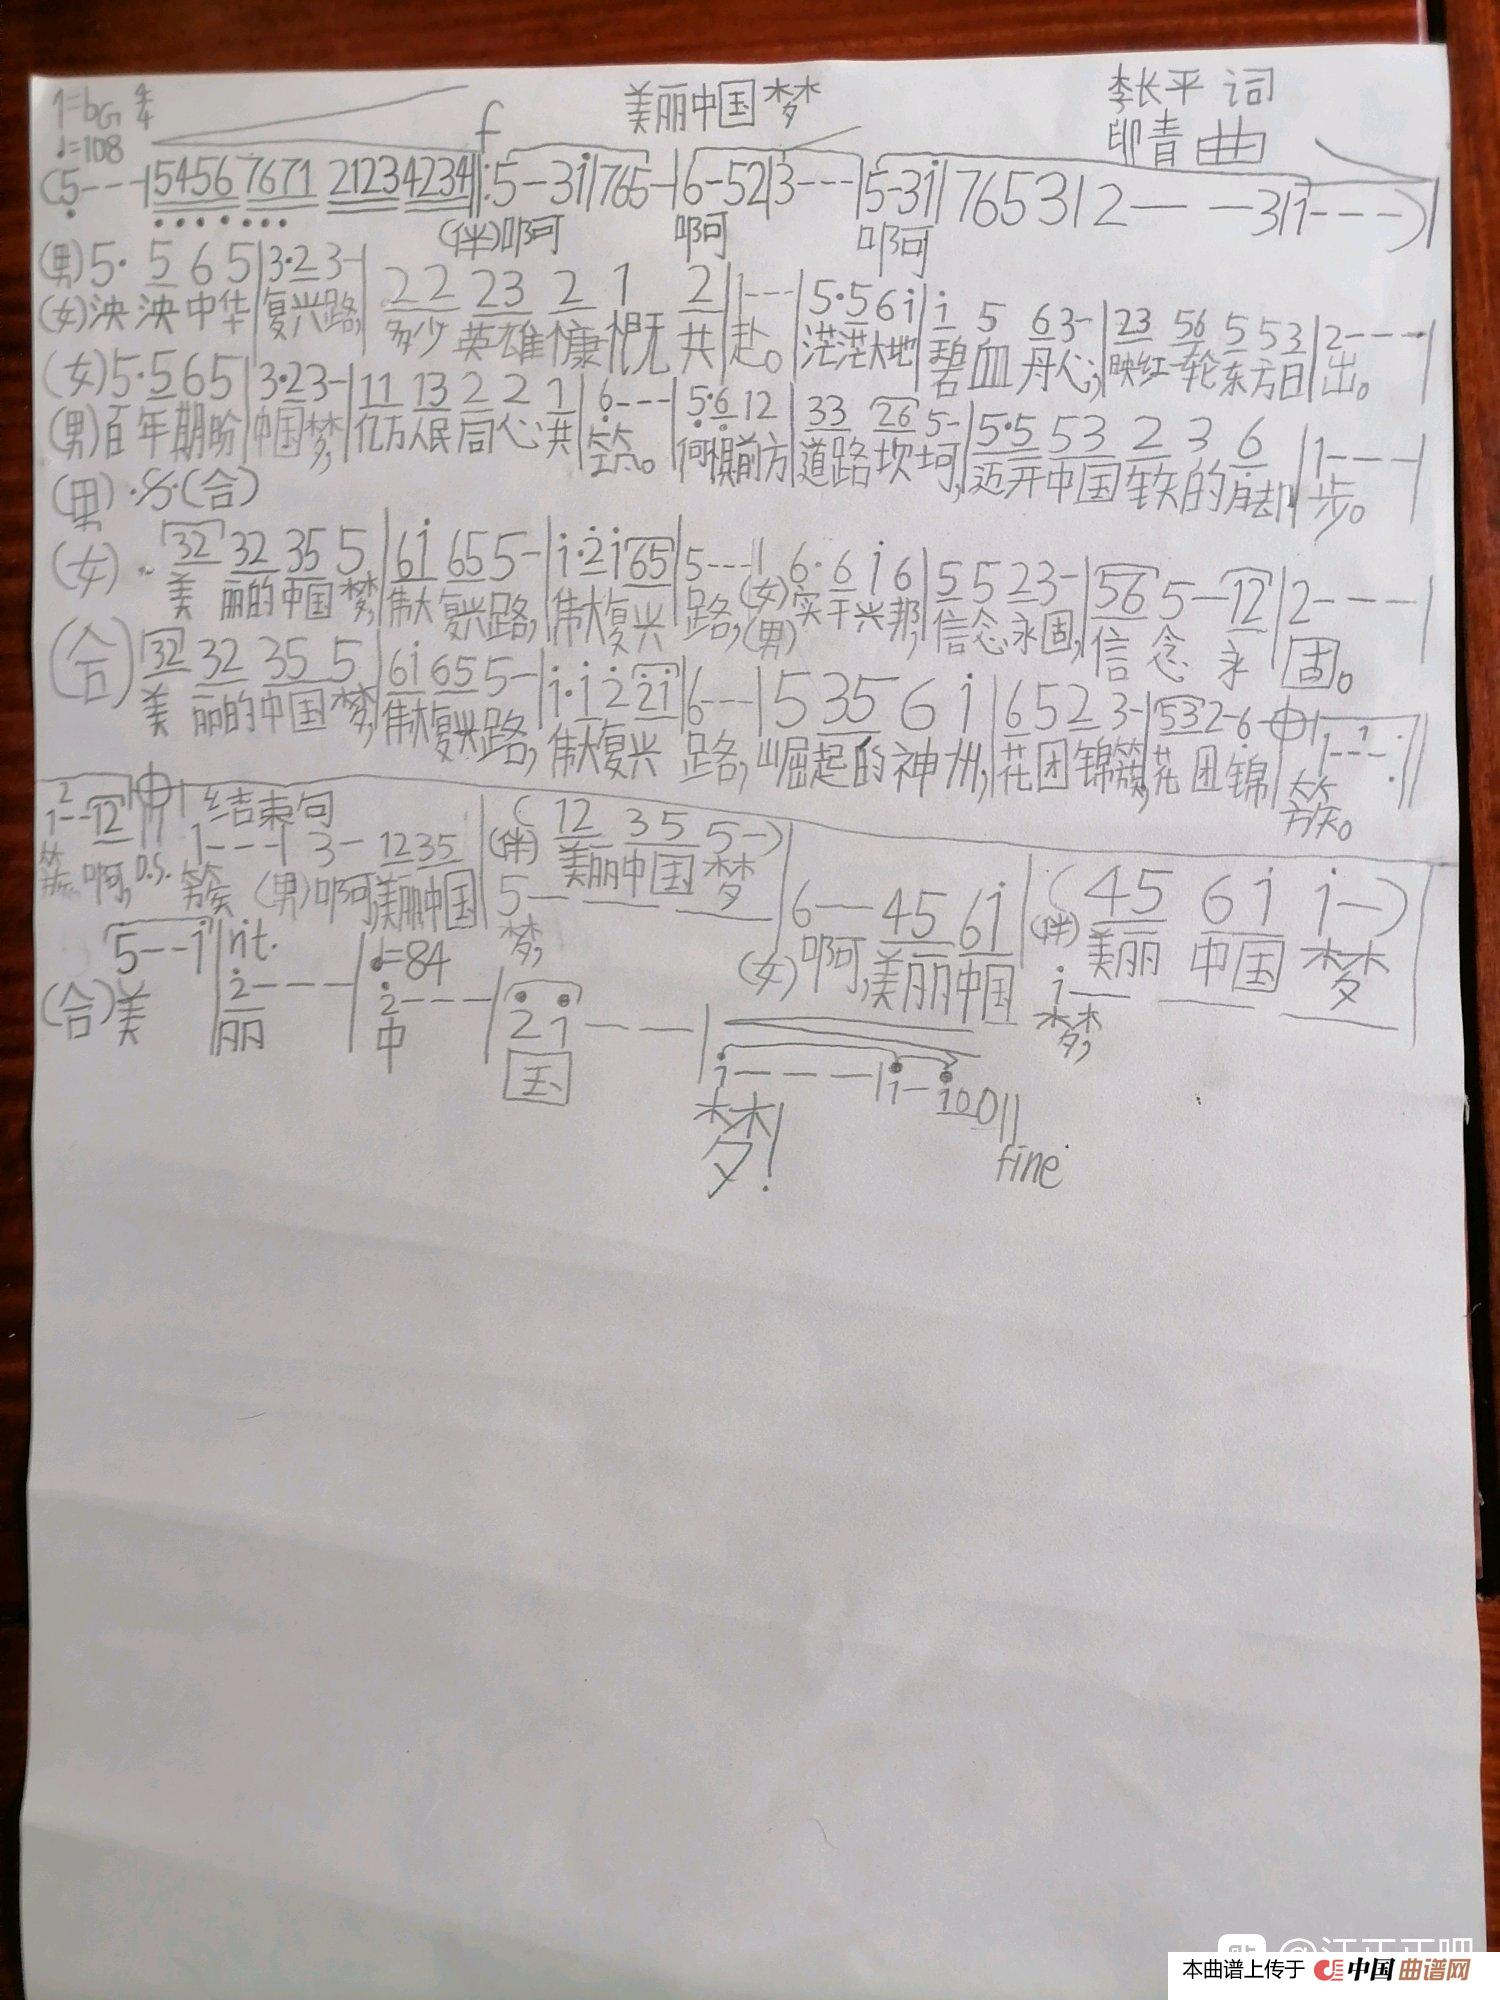 1=bG 4/4
美丽中国梦
李长平 词
♩=108
f
印青 曲
(5---|5456 7671 2123 4234‖:5-3i|765-|6-52|3---|5-3i|7653|2---3|1---)|
(伴)啊 啊 啊
(男)5· 5 6 5|3·2 3-|2 2 23 2 1 2|1---|5·5 6 i|i 5 6 3-|23 56 5 53|2---|
(女)泱泱中华|复兴路,|多少英雄慷慨共|赴。|茫茫大地|碧血丹心,|映红一轮东方日|出。
(女)5·5 6 5|3·2 3-|11 13 2 2 1|6---|5·6 12|33 26 5-|5·5 53 2 3 6|1---|
(男)百年期盼|中国梦,|亿万人民同心共|筑。|何惧前方|道路坎坷,|迈开中国铁的脚|步。
(男)·𝄋·(合)
(女) 32 32 35 5|6i 65 5-|i·2i65|5---|6· 6 i 6|5 5 2 3-|56 5-12|2---|
美丽的中国梦,|伟大复兴路,|伟大复兴|路,|(女)实干兴邦,|信念永固,|信念永|固。
(男)
(合)32 32 35 5|6i 65 5-|i·i 2 2i|6---|5 35 6 i|6 5 2 3-|532-6|1---:‖
美丽的中国梦,|伟大复兴路,|伟大复兴|路,|崛起的神州,|花团锦簇,|花团锦|簇。
2 结束句
1--12‖1---|3-1235|(12 35 5-)|6--45 6i|(45 6i i-)
簇。啊,D.S.簇 (男)啊,美丽中国 (伴)美丽中国梦
5---
梦,
(女)啊,美丽中国 (伴)美丽中国梦
i---
梦,
5--i|rit. 2---|♩=84 2---|2 1---|i----|i-i00‖
(合)美|丽|中|国|梦!
fine
本曲谱上传于 中国曲谱网